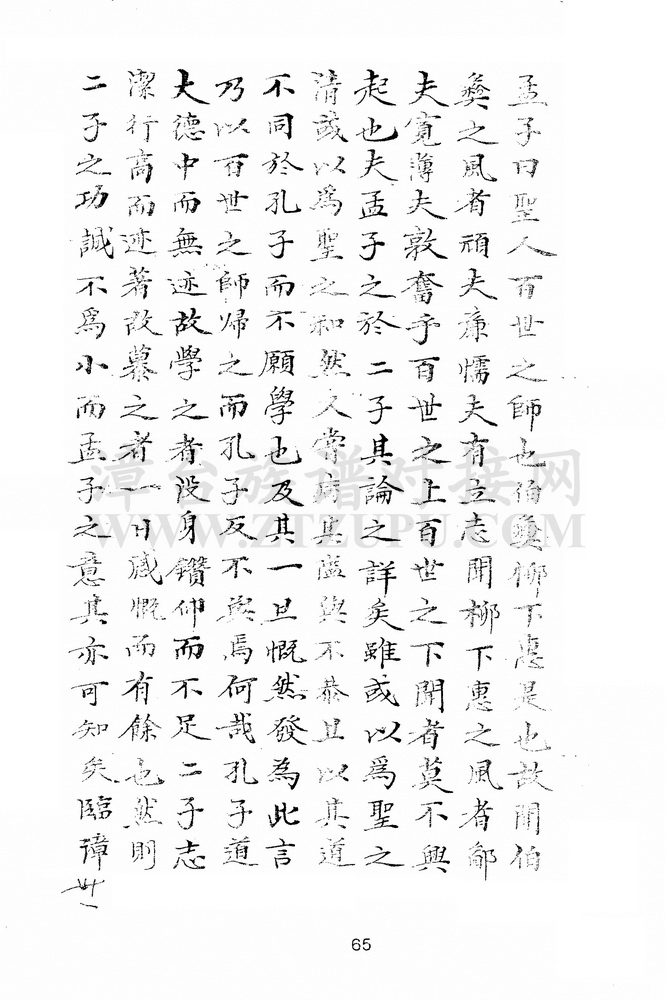 孟子曰聖人百世之師也伯夷柳下惠是也故聞伯
夷之風者頑夫廉懦夫有立志聞柳下惠之風者鄙
夫寬薄夫敦奮乎百世之上百世之下聞者莫不興
起也夫孟子之於二子其論之詳矣雖或以爲聖之
清或以爲聖之和然又嘗病其隘與不恭且以其道
不同於孔子而不願學也及其一旦慨然發為此言
乃以百世之師歸之而孔子反不與焉何哉孔子道
大德中而無迹故學之者没身鑽仰而不足二子志
潔行高而迹著故慕之者一日感慨而有餘也然則
二子之功誠不爲小而孟子之意其亦可知矣臨漳
卅一
漳台族谱对接网
WWW.ZTZUPU.COM
65